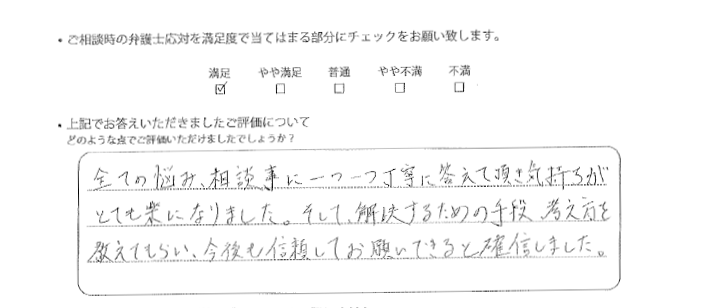 ・ご相談時の弁護士応対を満足度で当てはまる部分にチェックをお願い致します。
満足 やや満足 普通 やや不満 不満
☑ □ □ □ □
・上記でお答えいただきましたご評価について
どのような点でご評価いただけましたでしょうか？
全ての悩み、相談事に一つ一つ丁寧に答えて頂き気持ちが
とても楽になりました。そして、解決するための手段、考え方を
教えてもらい、今後も信頼してお願いできると確信しました。